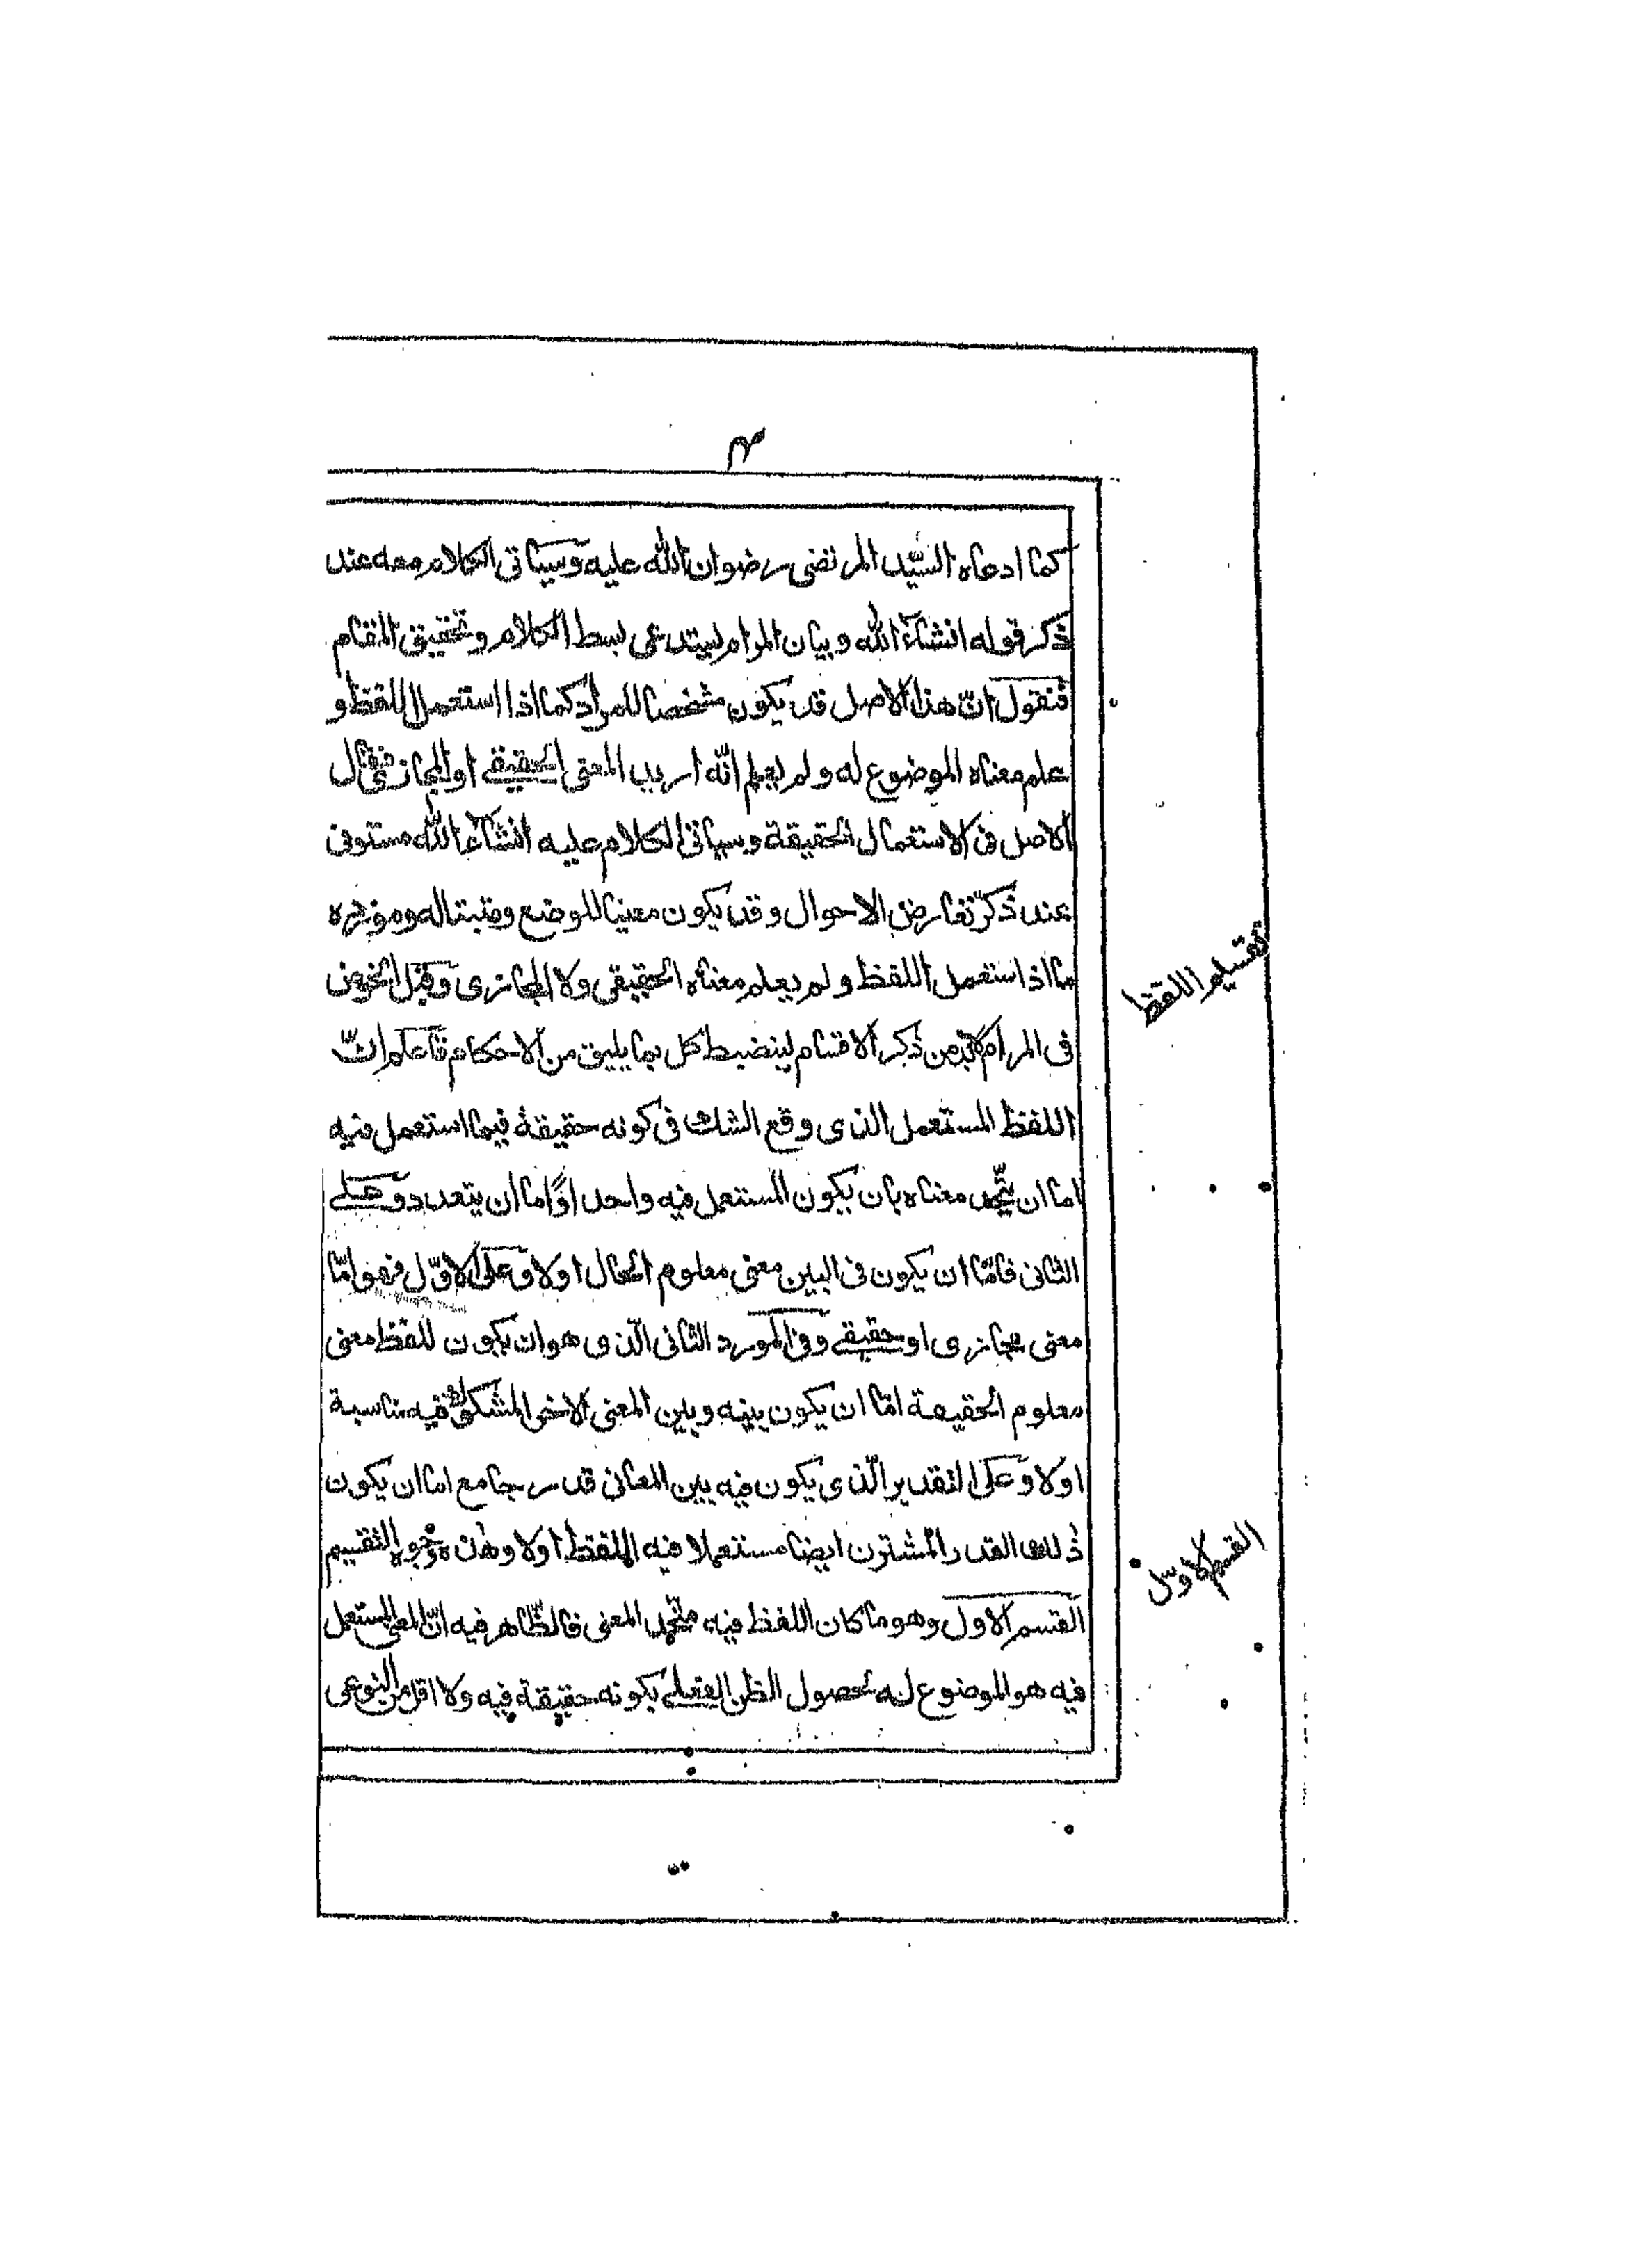 ٣
كما ادعاه السيّد المرتضى رضوان الله عليه وسيأتى الكلام معه عند
ذكر قوله انشآء الله وبيان المرام يستدعى بسط الكلام وتحقيق المقام
فنقول انّ هذا الاصل قد يكون مشخصا للمراد كما اذا استعمل اللفظ و
علم معناه الموضوع له ولم يعلم انّه اريد المعنى الحقيقى او المجازى فيقال
الاصل فى الاستعمال الحقيقة وسياتى الكلام عليه انشآء الله مستوفى
عند ذكر تعارض الاحوال وقد يكون معينا للوضع ومثبتا له ومورده
ما اذا استعمل اللفظ ولم يعلم معناه الحقيقى ولا المجازى وقبل الخوض
فى المرام لابد من ذكر الاقسام لينضبط كل بما يليق من الاحكام فاعلم انّ
اللفظ المستعمل الذى وقع الشك فى كونه حقيقة فيما استعمل فيه
اما ان يتّحد معناه بان يكون المستعمل فيه واحدا واما ان يتعدد وعلى
الثانى فامّا ان يكون فى البين معنى معلوم الحال اولا وعلى الاوّل فهو امّا
معنى مجازى او حقيقى وفى المورد الثانى الّذى هو ان يكون للفظ معنى
معلوم الحقيقة امّا ان يكون بينه وبين المعنى الاخر المشكوك فيه مناسبة
اولا وعلى التقدير الّذى يكون فيه بين المعانى قدر جامع اما ان يكون
ذلك القدر المشترك ايضا مستعملا فيه اللفظ اولا وهذه وجوه التقسيم
القسم الاول وهو ما كان اللفظ فيه متّحد المعنى فالظّاهر فيه انّ المعنى المستعمل
فيه هو الموضوع له لحصول الظن الفعلى بكونه حقيقة فيه ولا اقل من النوعى
تقسيم اللفظ
القسم الاوّل